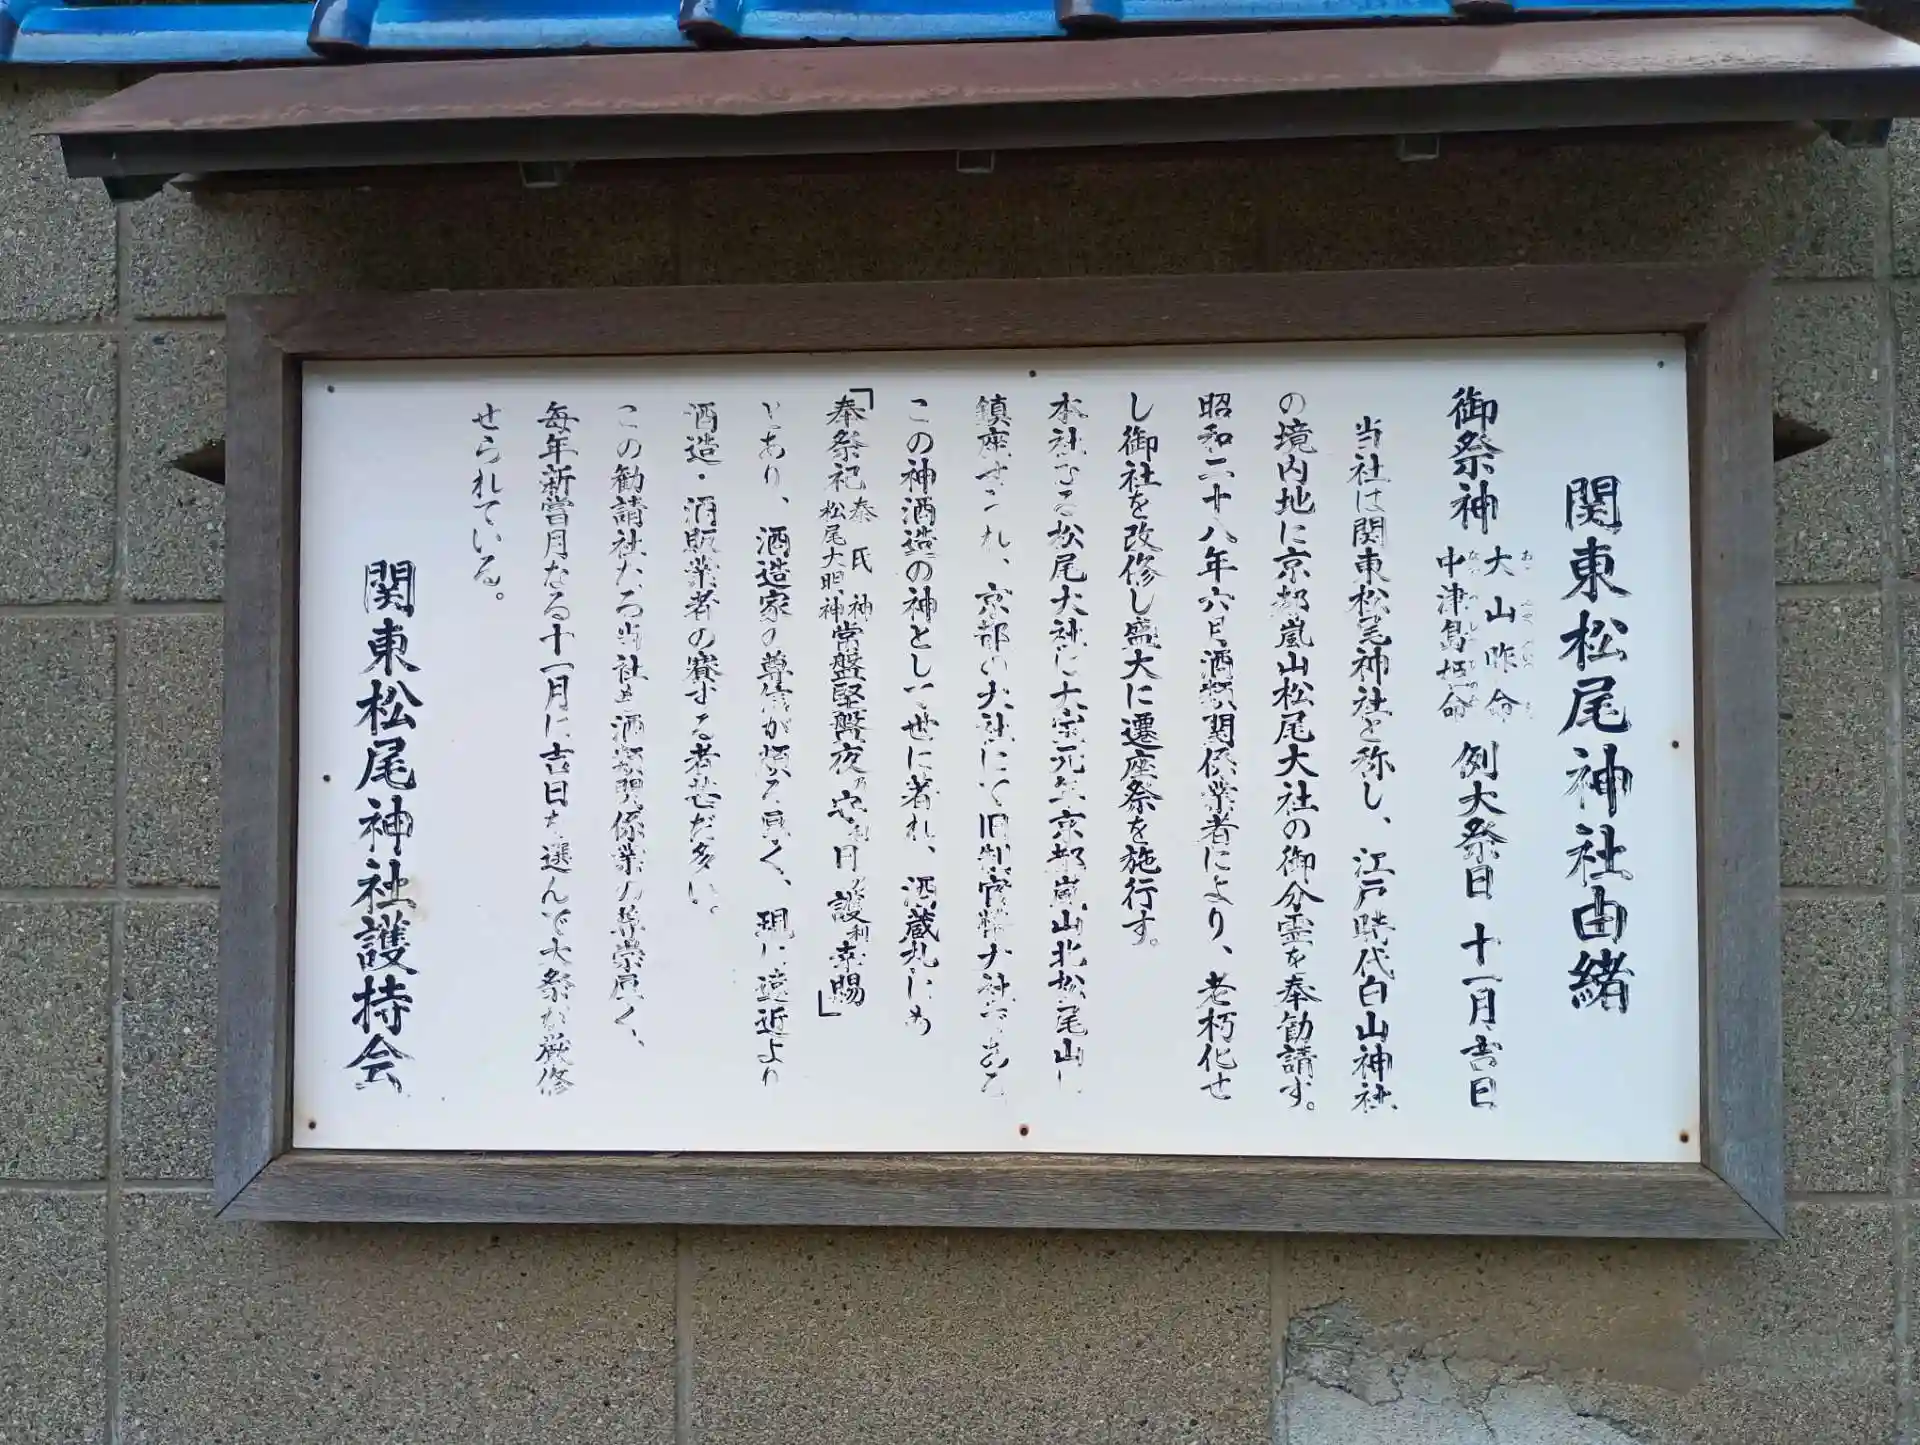 関東松尾神社由緒
御祭神
大山咋命
中津島姫命
例大祭日 十一月吉日
当社は関東松尾神社と称し、江戸時代白山神社
の境内地に京都嵐山松尾大社の御分霊を奉勧請す。
昭和二十八年六月酒類関係業者により、老朽化せ
し御社を改修し盛大に遷座祭を施行す。
本社なる松尾大社は大宝元年京都嵐山北松尾山に
鎮座まされ、京都の大社にて旧制官幣大社である
この神酒造の神として世に著れ、酒蔵札にも
「奉祭祀 秦氏神 松尾大明神 常盤堅盤夜乃守利日乃護利幸賜」
とあり、酒造家の尊信が頗る厚く、現に遠近より
酒造・酒販業者の賽する者甚だ多い。
この勧請社なる当社も酒類関係業の尊崇厚く、
毎年新嘗月なる十一月に吉日を選んで大祭が厳修
せられている。
関東松尾神社護持会